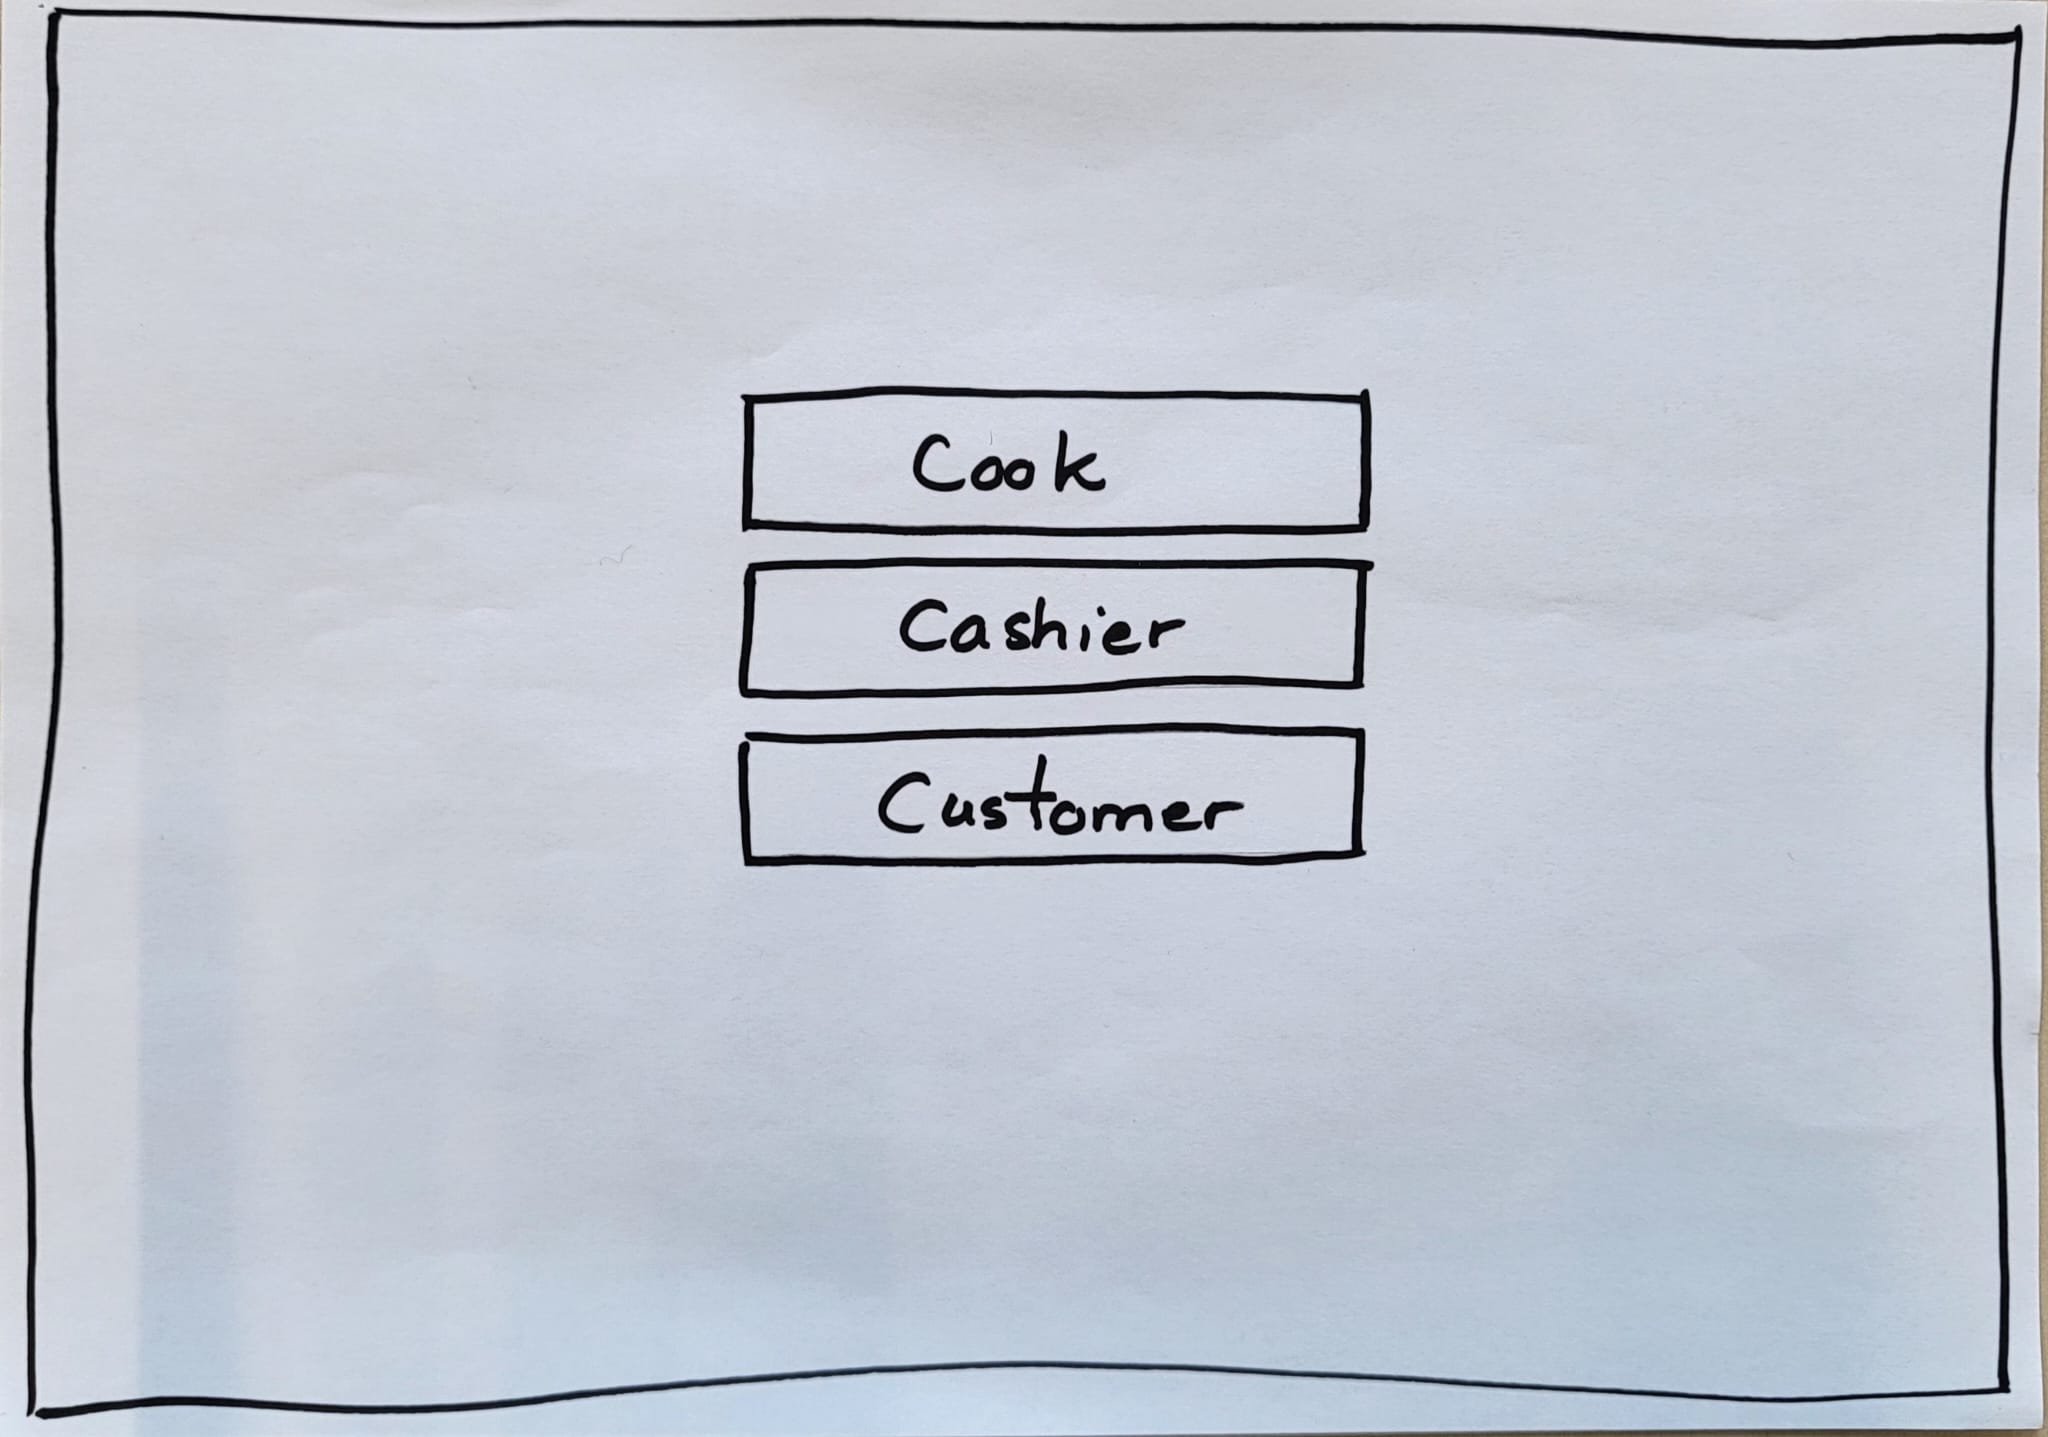 Cook
Cashier
Customer